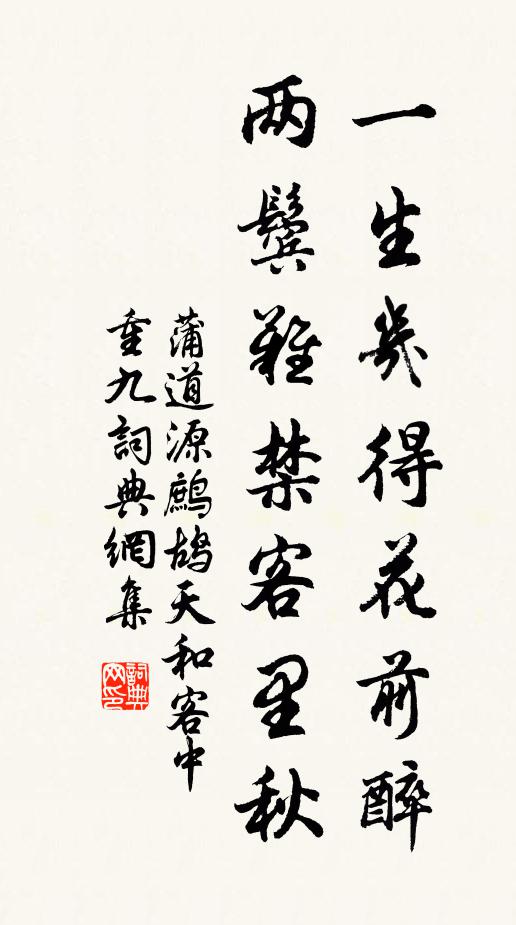 一生幾得花前醉
两鬓難禁客里秋
蒲道源鷓鴣天和客中
重九詞典網集
詞典网印